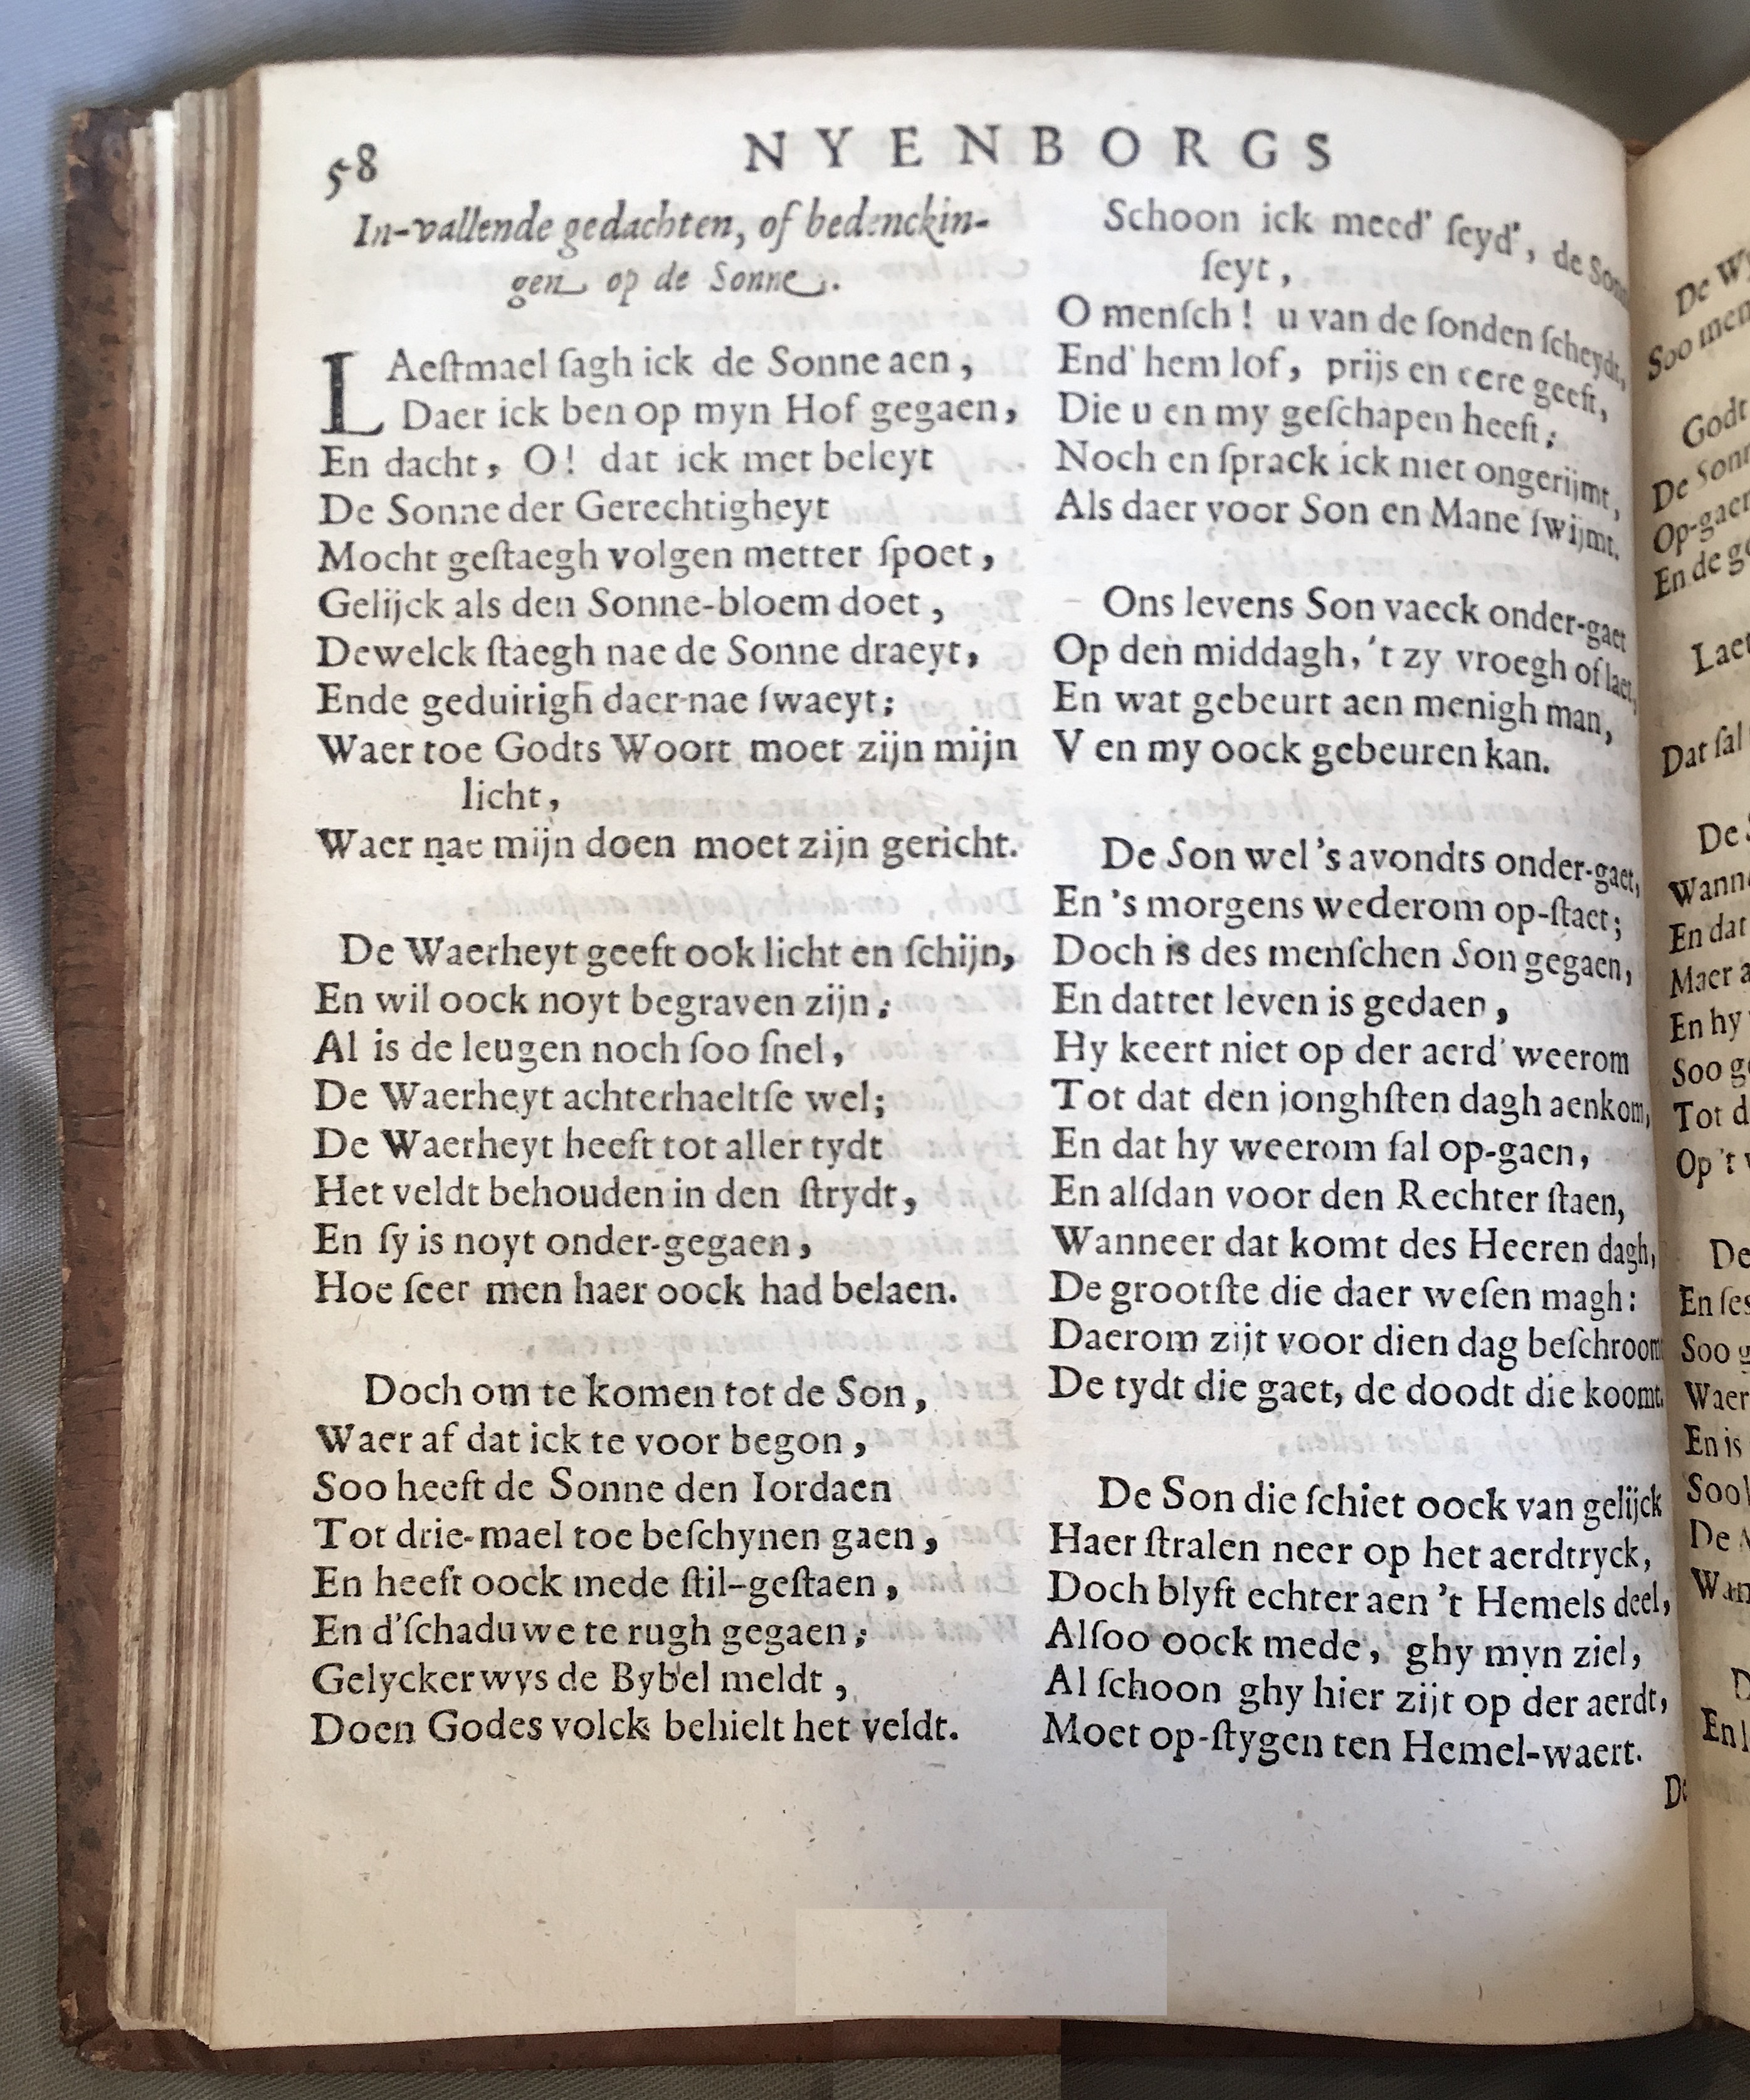 58
NYENBORGS
In-vallende gedachten, of bedenckin-
gen op de Sonne.
LAeſtmael ſagh ick de Sonne aen,
Daer ick ben op myn Hof gegaen,
En dacht, O! dat ick met beleyt
De Sonne der Gerechtigheyt
Mocht geſtaegh volgen metter ſpoet,
Gelijck als den Sonne-bloem doet,
Dewelck ſtaegh nae de Sonne draeyt,
Ende geduirigh daer-nae ſwaeyt;
Waer toe Godts Woort moet zijn mijn
licht,
Waer nae mijn doen moet zijn gericht.
De Waerheyt geeft ook licht en ſchijn,
En wil oock noyt begraven zijn;
Al is de leugen noch ſoo ſnel,
De Waerheyt achterhaeltſe wel;
De Waerheyt heeft tot aller tydt
Het veldt behouden in den ſtrydt,
En ſy is noyt onder-gegaen,
Hoe ſeer men haer oock had belaen.
Doch om te komen tot de Son,
Waer af dat ick te voor begon,
Soo heeft de Sonne den Iordaen
Tot drie-mael toe beſchynen gaen,
En heeft oock mede ſtil-geſtaen,
En d'ſchaduwe te rugh gegaen;
Gelyckerwys de Bybel meldt,
Doen Godes volck behielt het veldt.
Schoon ick meed' ſeyd', de Son
ſeyt,
O menſch! u van de ſonden ſcheydt,
End' hem lof, prijs en eere geeft,
Die u en my geſchapen heeft;
Noch en ſprack ick niet ongerijmt,
Als daer voor Son en Mane ſwijmt.
Ons levens Son vaeck onder-gaet
Op den middagh, 't zy vroegh of laet,
En wat gebeurt aen menigh man,
V en my oock gebeuren kan.
De Son wel 's avondts onder-gaet,
En 's morgens wederom op-ſtaet;
Doch is des menſchen Son gegaen,
En dattet leven is gedaen,
Hy keert niet op der aerd' weerom
Tot dat den jonghſten dagh aenkom,
En dat hy weerom ſal op-gaen,
En alſdan voor den Rechter ſtaen,
Wanneer dat komt des Heeren dagh,
De grootſte die daer weſen magh:
Daerom zijt voor dien dag beſchroomt
De tydt die gaet, de doodt die koomt.
De Son die ſchiet oock van gelijck
Haer ſtralen neer op het aerdtryck,
Doch blyft echter aen 't Hemels deel,
Alſoo oock mede, ghy myn ziel,
Al ſchoon ghy hier zijt op der aerdt,
Moet op-ſtygen ten Hemel-waert.
De
De
Soo
Godt
De
Op-gaen
En de
Laet
Dat ſal
De
En dat
Maer
En hy
Soo
Tot
Op 't
De
En
Soo
Waer
En is
Soo
De
En